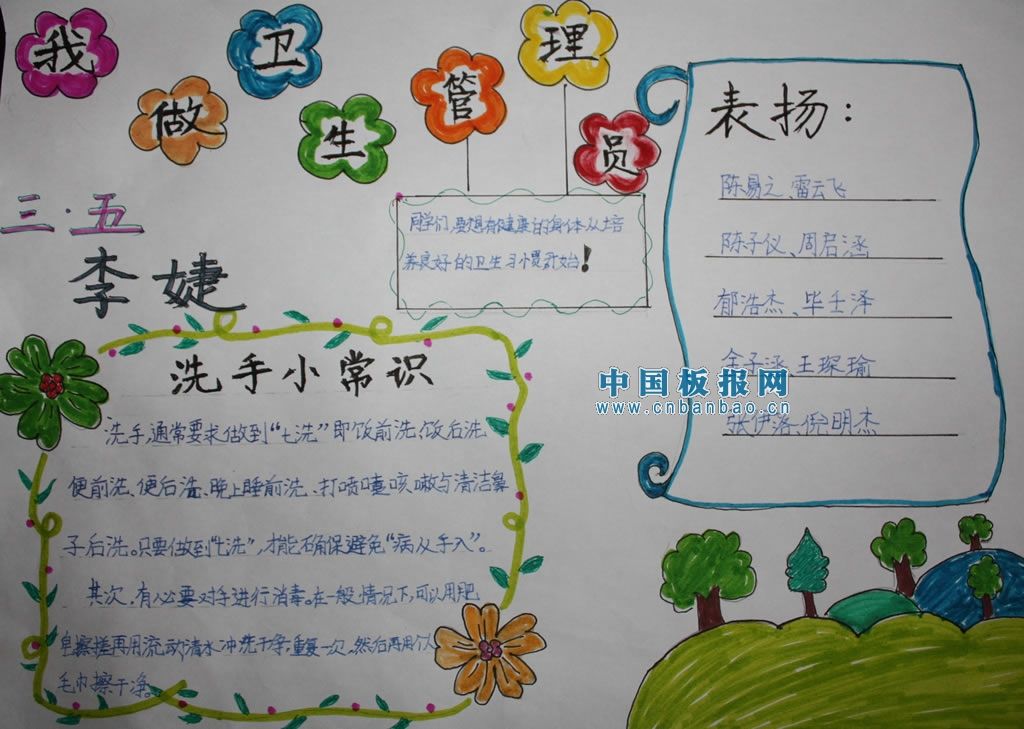 我做卫生管理员
三·五
李婕
同学们,要想有健康的身体从培
养良好的卫生习惯开始!
表扬:
陈易之、雷云飞
陈子仪、周启涵
郁浩杰、毕壬泽
金子涵、王琛瑜
张伊洛、倪明杰
中国板报网
www.cnbanbao.cn
洗手小常识
洗手,通常要求做到“七洗”即饭前洗、饭后洗
便前洗、便后洗、晚上睡前洗、打喷嚏咳嗽与清洁鼻
子后洗。只要做到“七洗”,才能确保避免“病从手入”。
其次,有必要对手进行消毒。在一般情况下,可以用肥
皂擦搓再用流动清水冲洗干净,重复一次,然后再用个人
毛巾擦干净。